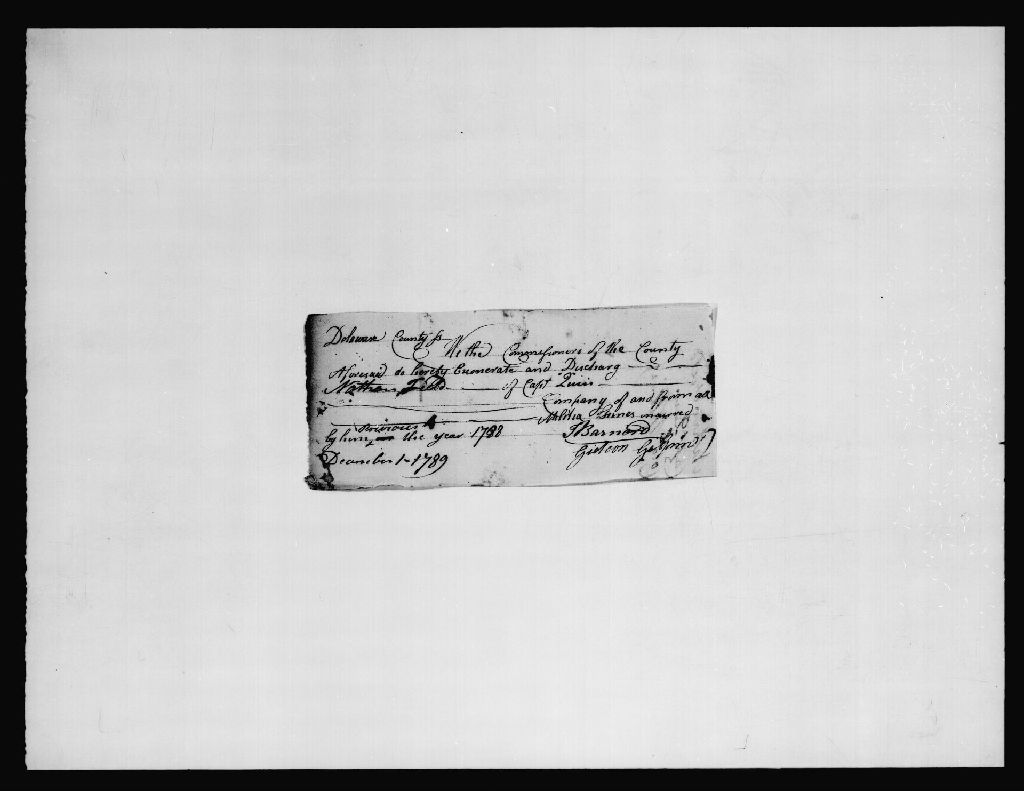 Delaware County ss
We the Commissioners of the County
Aforesaid do hereby Exonerate and Discharg
Nathan of Capt
Company of and from all
Militia Fines incurred
previous to
by him the year 1788
J Barnard
Gideon
December 1- 1789